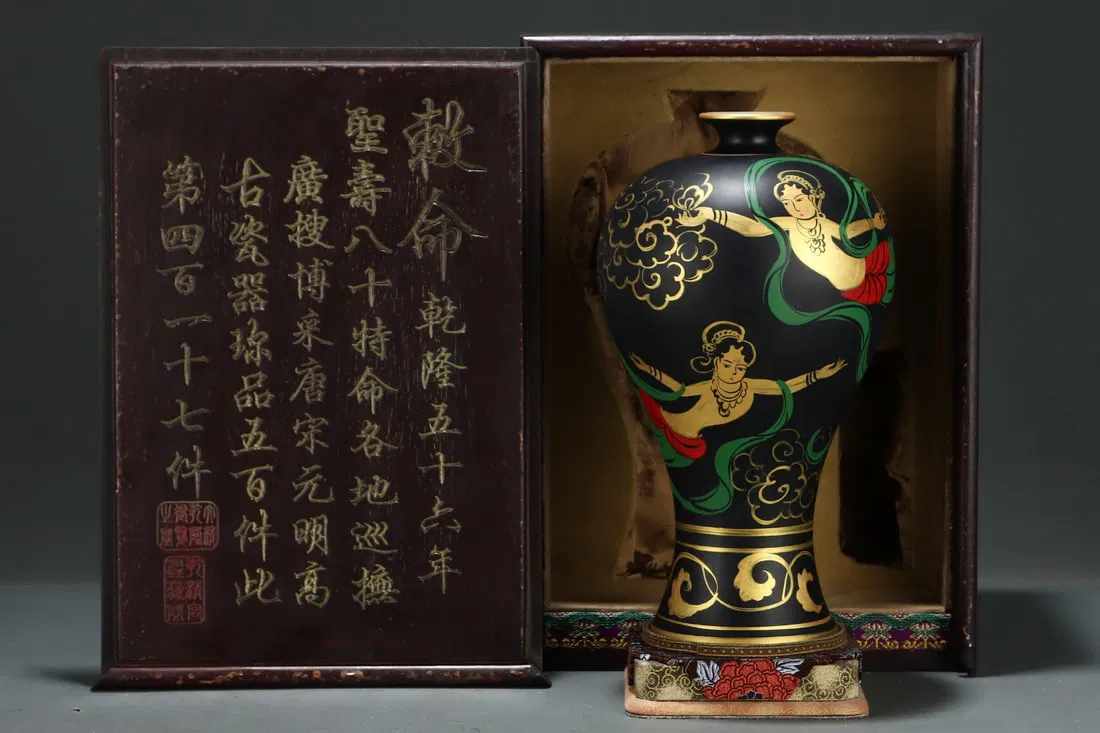 敕命乾隆五十六年
聖壽八十特命各地巡撫
廣搜博采唐宋元明高
古瓷器珎品五百件此
第四百一十七件